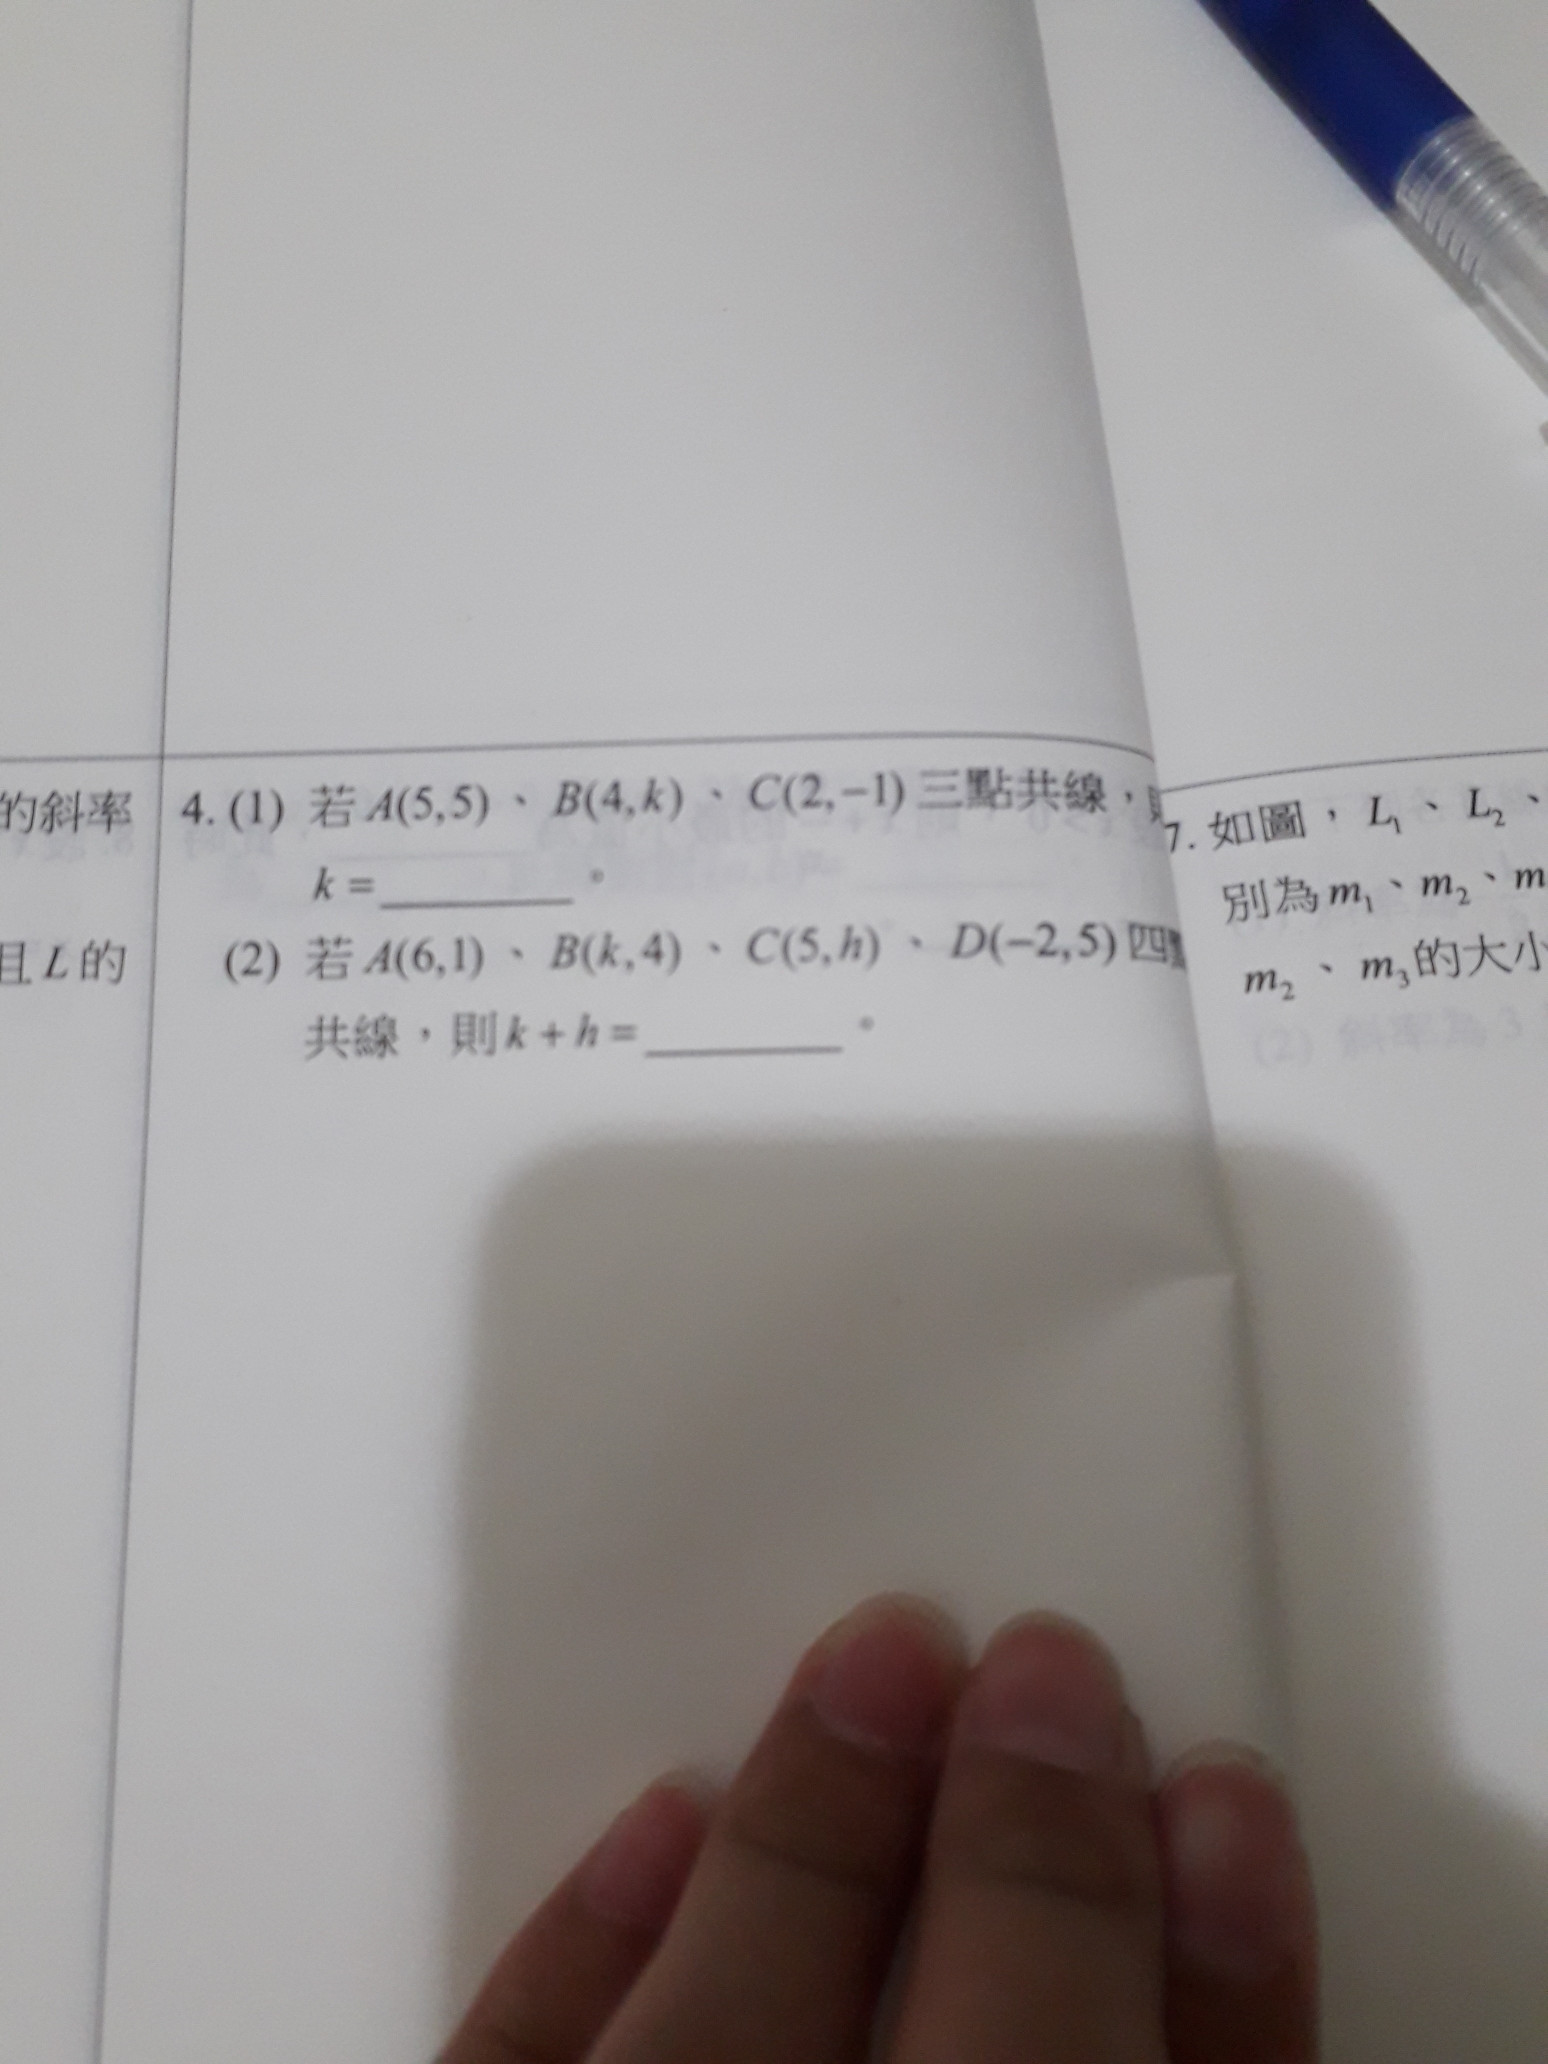 的斜率
且L的
4. (1) 若 A(5,5)、B(4,k)、C(2,−1) 三點共線，
k = ________。
(2) 若 A(6,1)、B(k,4)、C(5,h)、D(−2,5) 四
共線，則 k + h = ________。
7. 如圖，L₁、L₂、
別為 m₁、m₂、m
m₂、m₃的大小